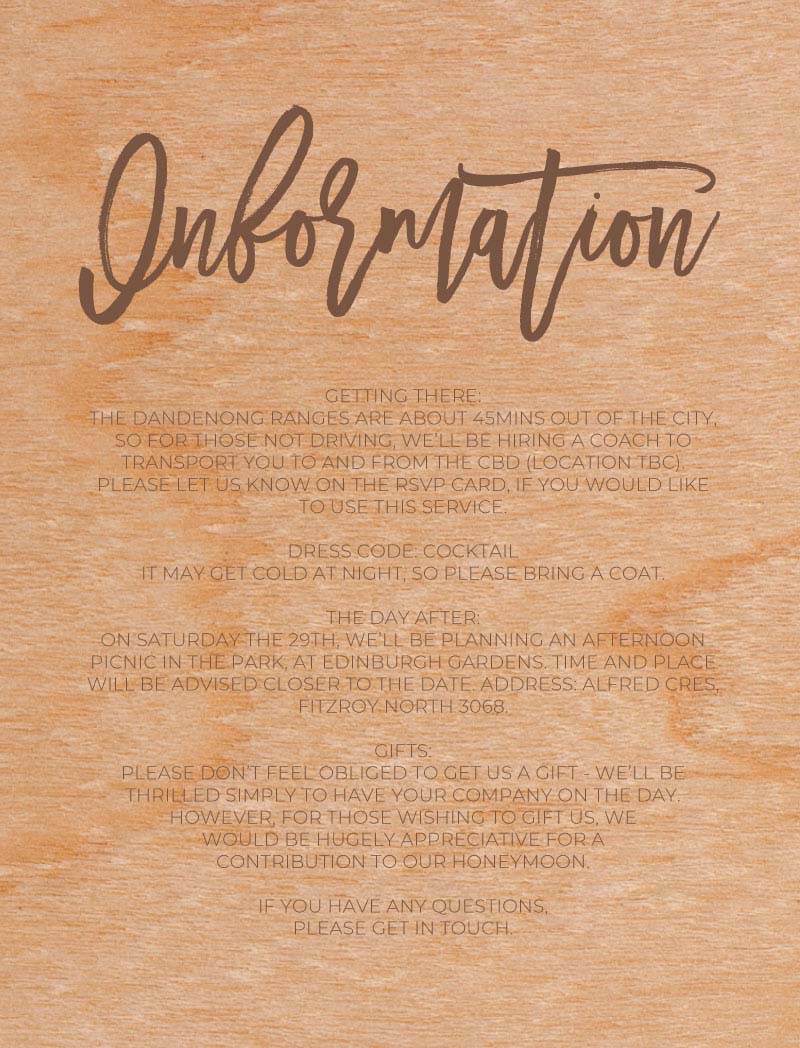 Information
GETTING THERE:
THE DANDENONG RANGES ARE ABOUT 45MINS OUT OF THE CITY,
SO FOR THOSE NOT DRIVING, WE'LL BE HIRING A COACH TO
TRANSPORT YOU TO AND FROM THE CBD (LOCATION TBC).
PLEASE LET US KNOW ON THE RSVP CARD, IF YOU WOULD LIKE
TO USE THIS SERVICE.
DRESS CODE: COCKTAIL
IT MAY GET COLD AT NIGHT, SO PLEASE BRING A COAT.
THE DAY AFTER:
ON SATURDAY THE 29TH, WE'LL BE PLANNING AN AFTERNOON
PICNIC IN THE PARK, AT EDINBURGH GARDENS. TIME AND PLACE
WILL BE ADVISED CLOSER TO THE DATE. ADDRESS: ALFRED CRES,
FITZROY NORTH 3068.
GIFTS:
PLEASE DON'T FEEL OBLIGED TO GET US A GIFT - WE'LL BE
THRILLED SIMPLY TO HAVE YOUR COMPANY ON THE DAY.
HOWEVER, FOR THOSE WISHING TO GIFT US, WE
WOULD BE HUGELY APPRECIATIVE FOR A
CONTRIBUTION TO OUR HONEYMOON.
IF YOU HAVE ANY QUESTIONS,
PLEASE GET IN TOUCH.